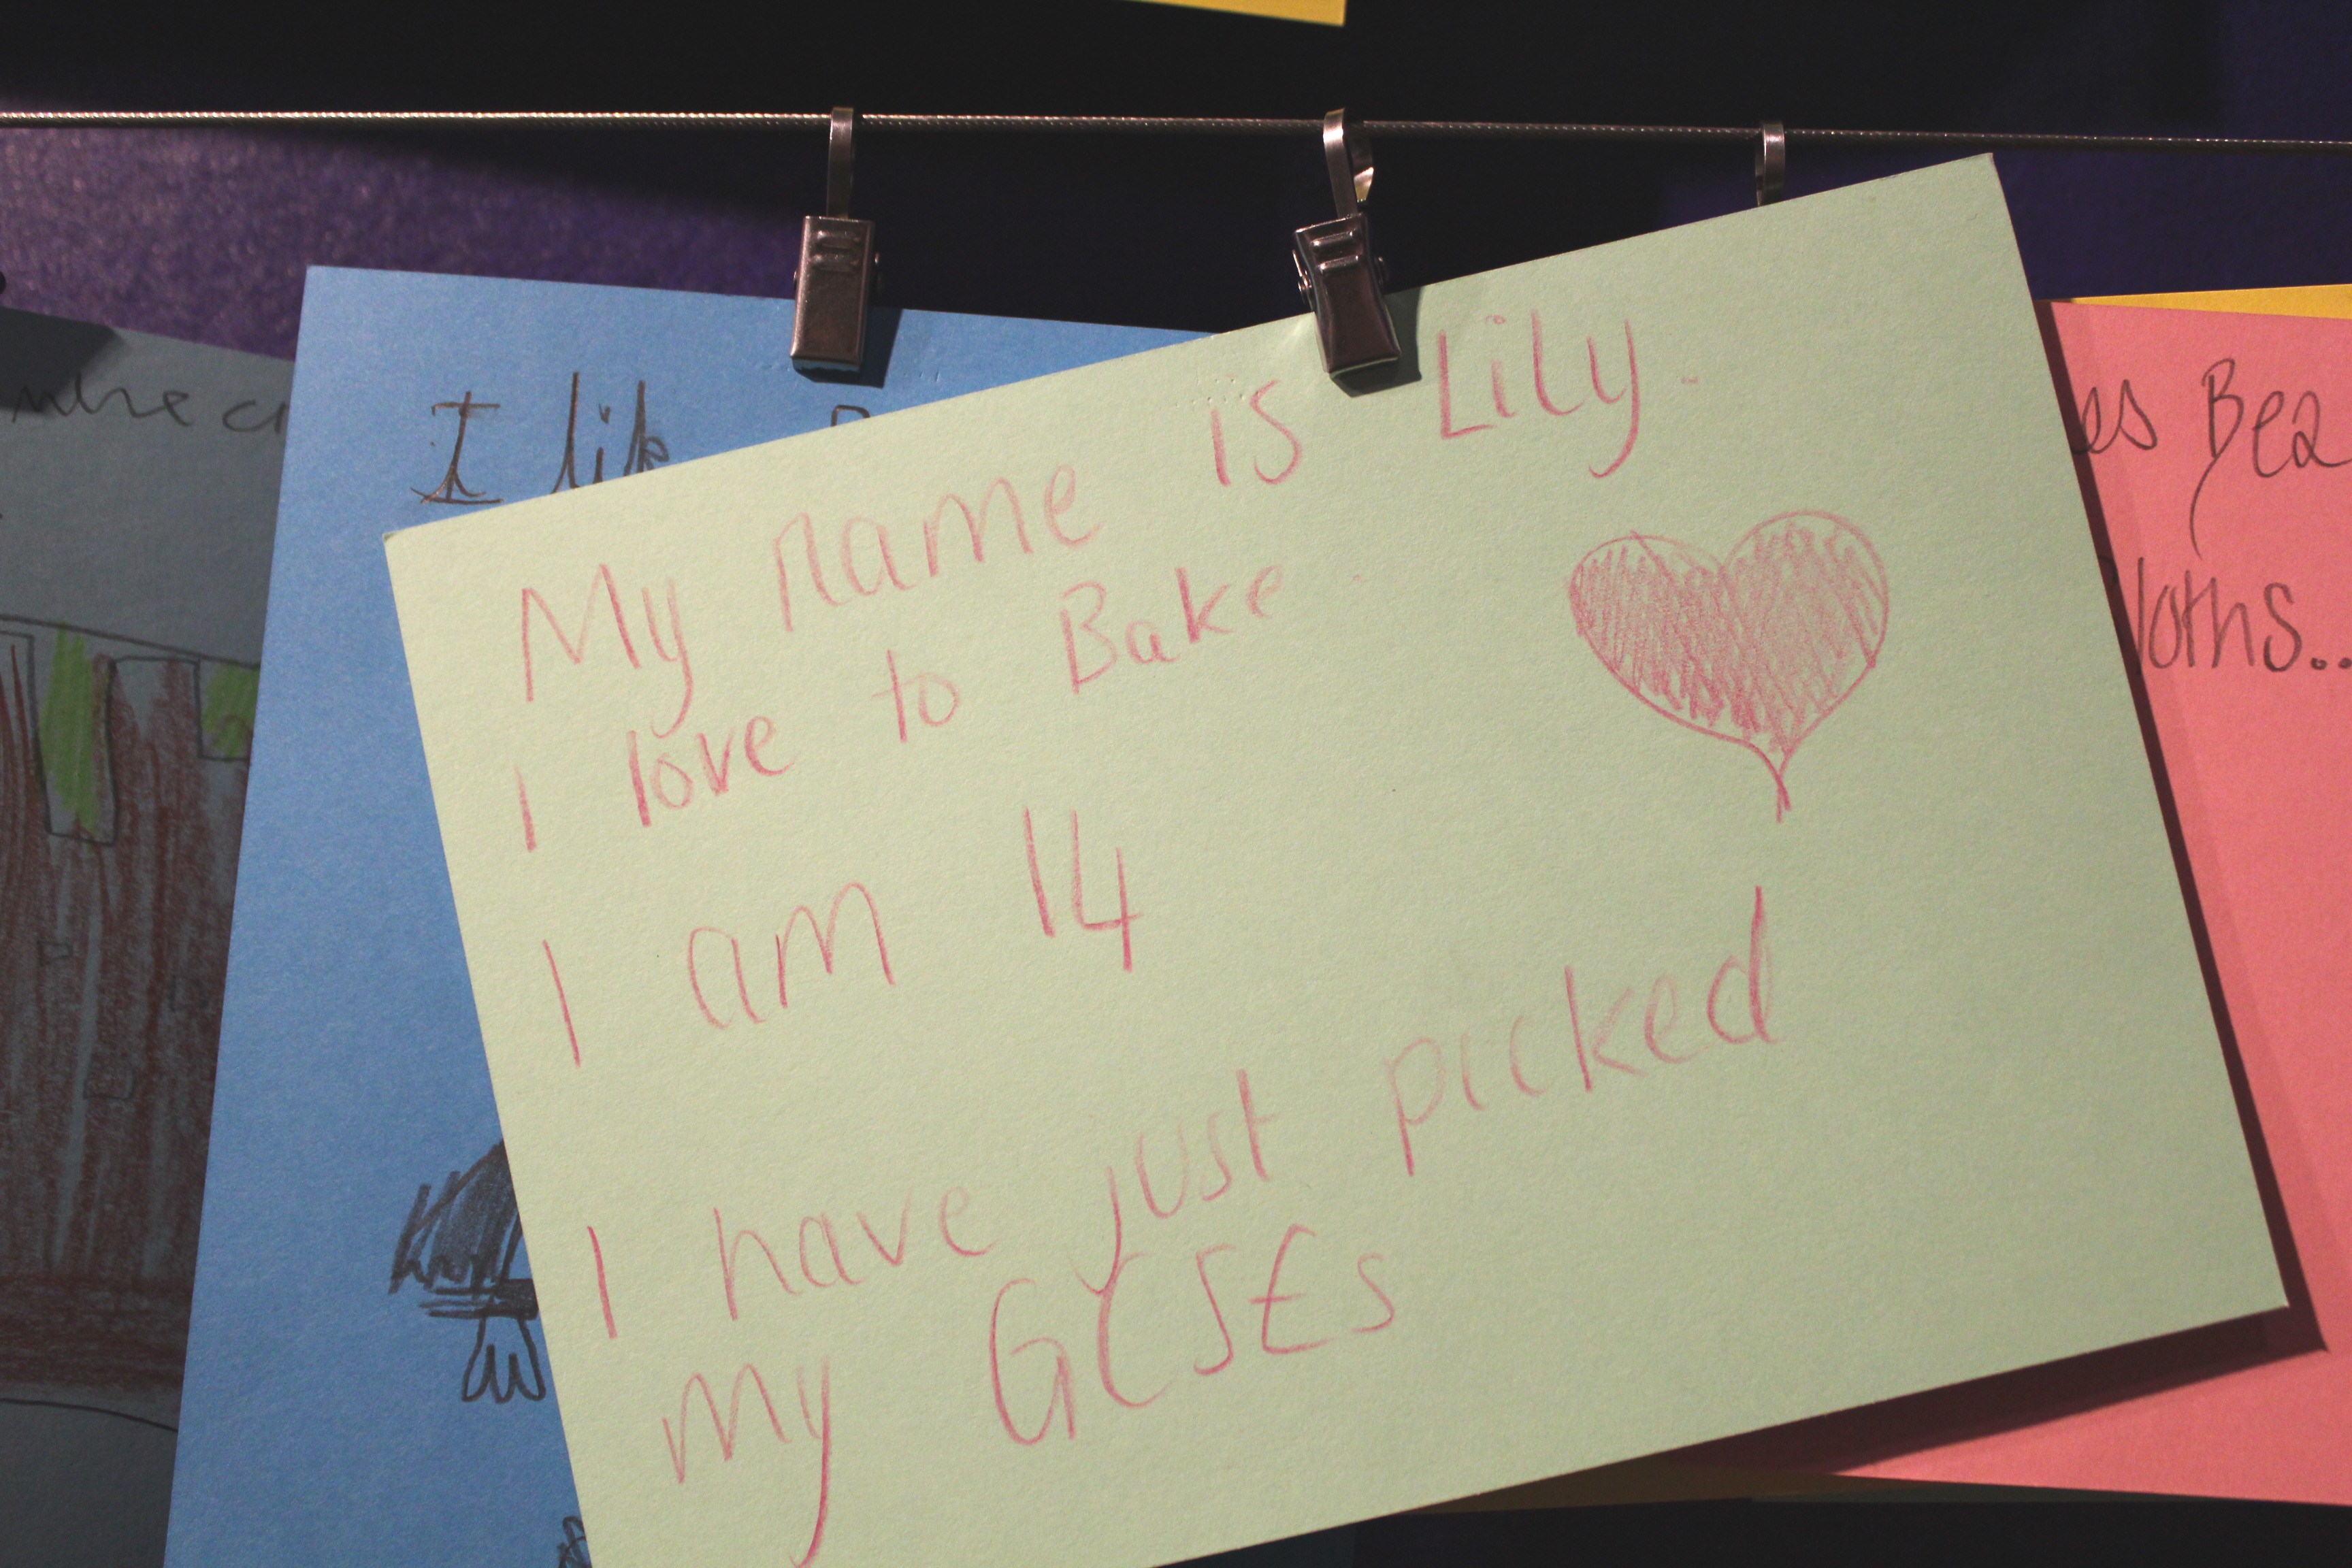 My name is Lily.
I love to Bake
I am 14
I have just picked
my GCSEs
I lik
loths...